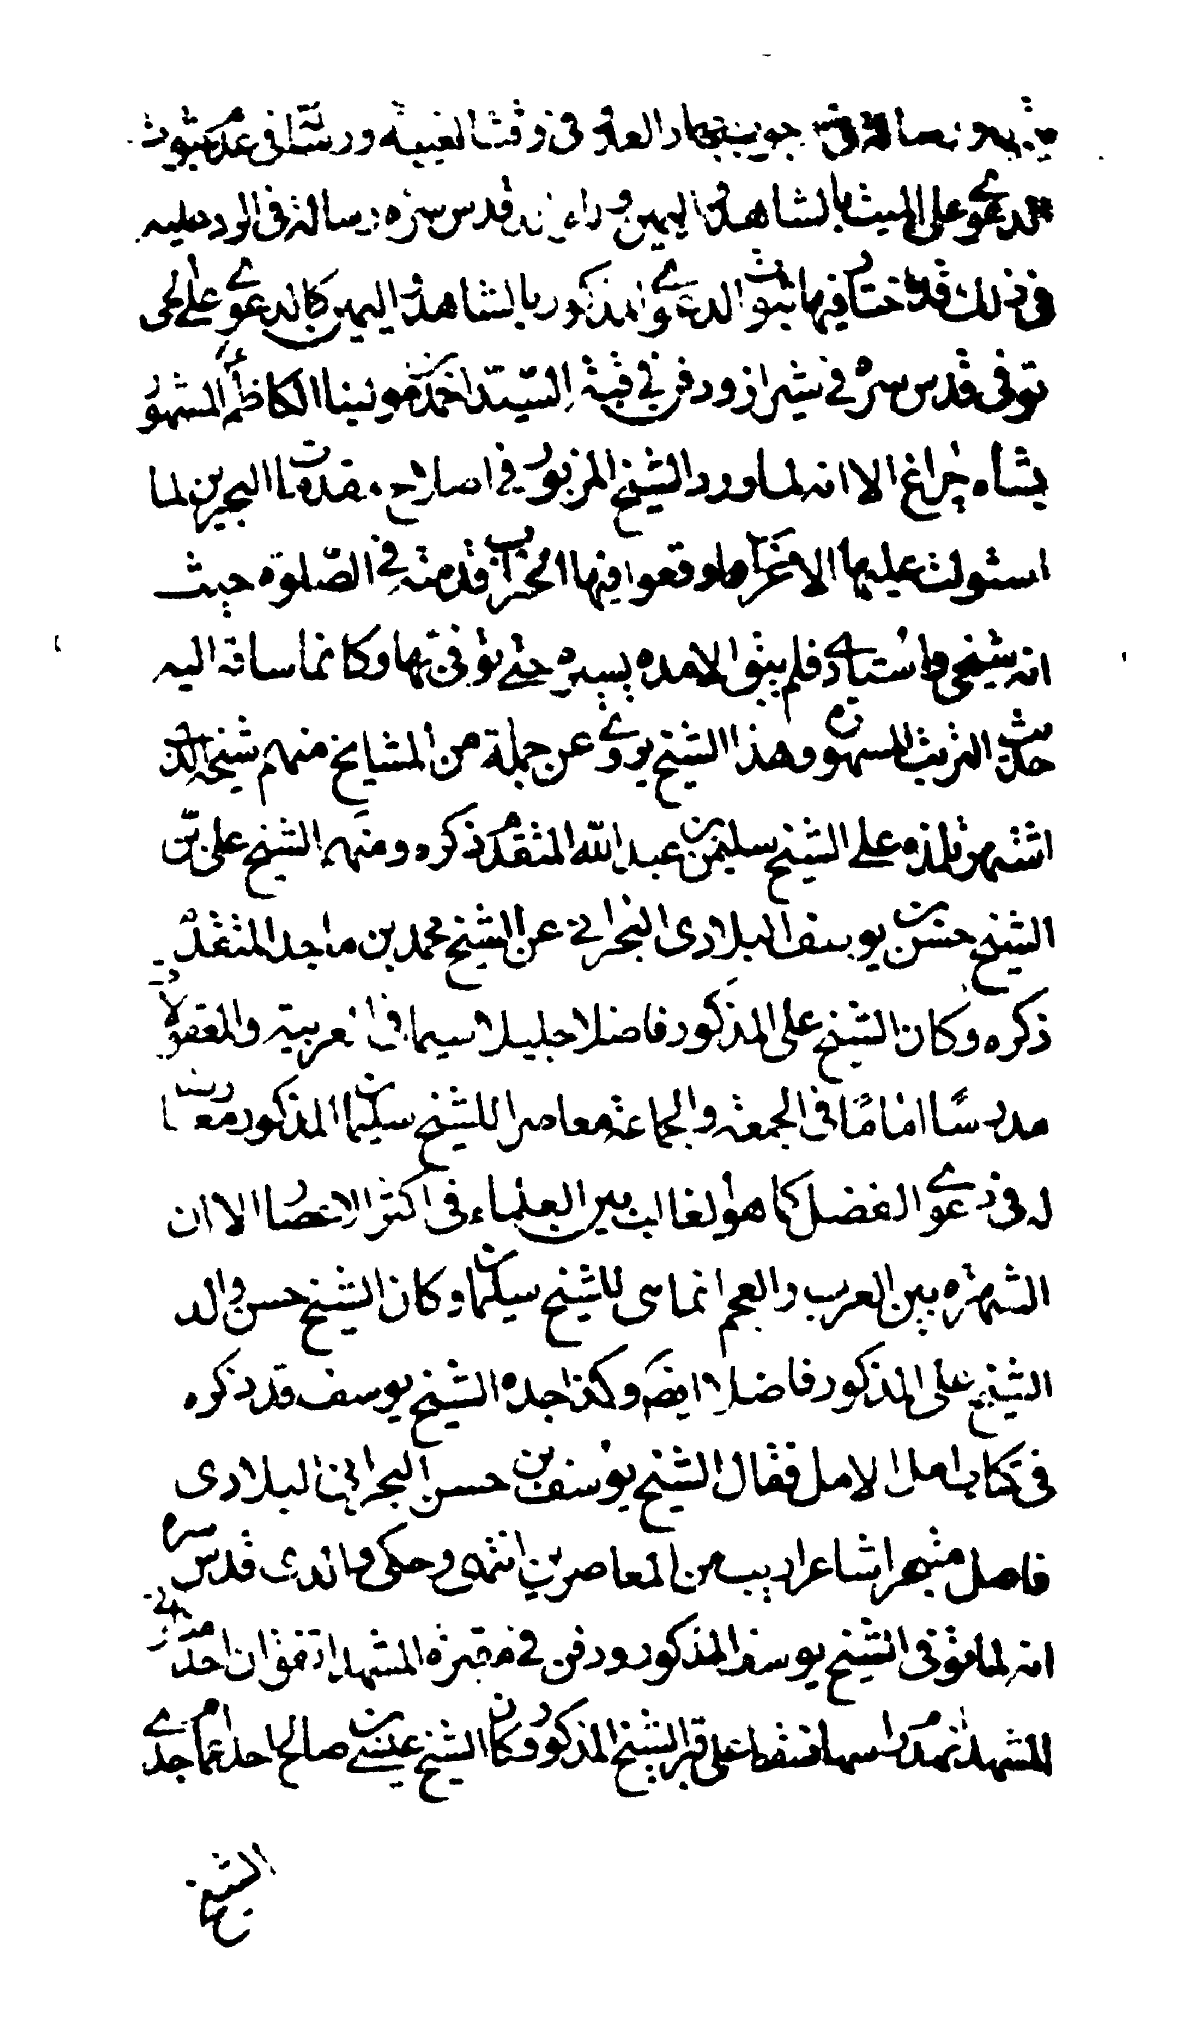 جهاد العدو في وقت الغيبة ورسالة في عدم ثبوت
الدعوى على الميت بالشاهد واليمين قدس سره رسالة في الرد عليه
في ذلك قد اختار فيها ثبوت الدعوى المذكور بالشاهد واليمين كالدعوى على الحي
توفى قدس سره في شيراز ودفن في قبة السيد احمد بن مولينا الكاظم ع المشهور
بشاه چراغ الا انه لما ورد الشيخ المزبور في اصلاح مقدمات البحرين لما
استولت عليها الاعراب واوقعوا فيها الخراب قدمته في الصلوة حيث
انه شيخي واستادي فلم يبق الا مدة يسيره حتى توفى بها وكانما ساقه اليه
حديث التربة المشهور وهذا الشيخ يروي عن جملة من المشايخ منهم شيخه الذي
اشتهر تلمذه على الشيخ سليمن بن عبد الله المتقدم ذكره ومنهم الشيخ على بن
الشيخ حسن بن يوسف البلادى البحراني عن الشيخ محمد بن ماجد المتقدم
ذكره وكان الشيخ على المذكور فاضلا جليلا سيما في العربية والمعقولات
مدرسا اماما في الجمعة والجماعة معاصرا للشيخ سليمان المذكور معارضا
له في دعوى الفضل كما هو الغالب بين العلماء في اكثر الاعصار الا ان
الشهره بين العرب والعجم انما هى للشيخ سليمان وكان الشيخ حسن والد
الشيخ على المذكور فاضلا ايضا وكذا جده الشيخ يوسف قد ذكره
في كتاب امل الامل فقال الشيخ يوسف بن حسن البحراني البلادى
فاضل متبحر شاعر اديب من المعاصرين انتهى وحكى والدى قدس سره
انه لما توفى الشيخ يوسف المذكور ودفن في مقبرة المشهد اتفق ان احد منارتي
المشهد تهدم راسها فسقط على قبر الشيخ المذكور وكان الشيخ عيسى بن صالح احد اعمام جدي
الشيخ